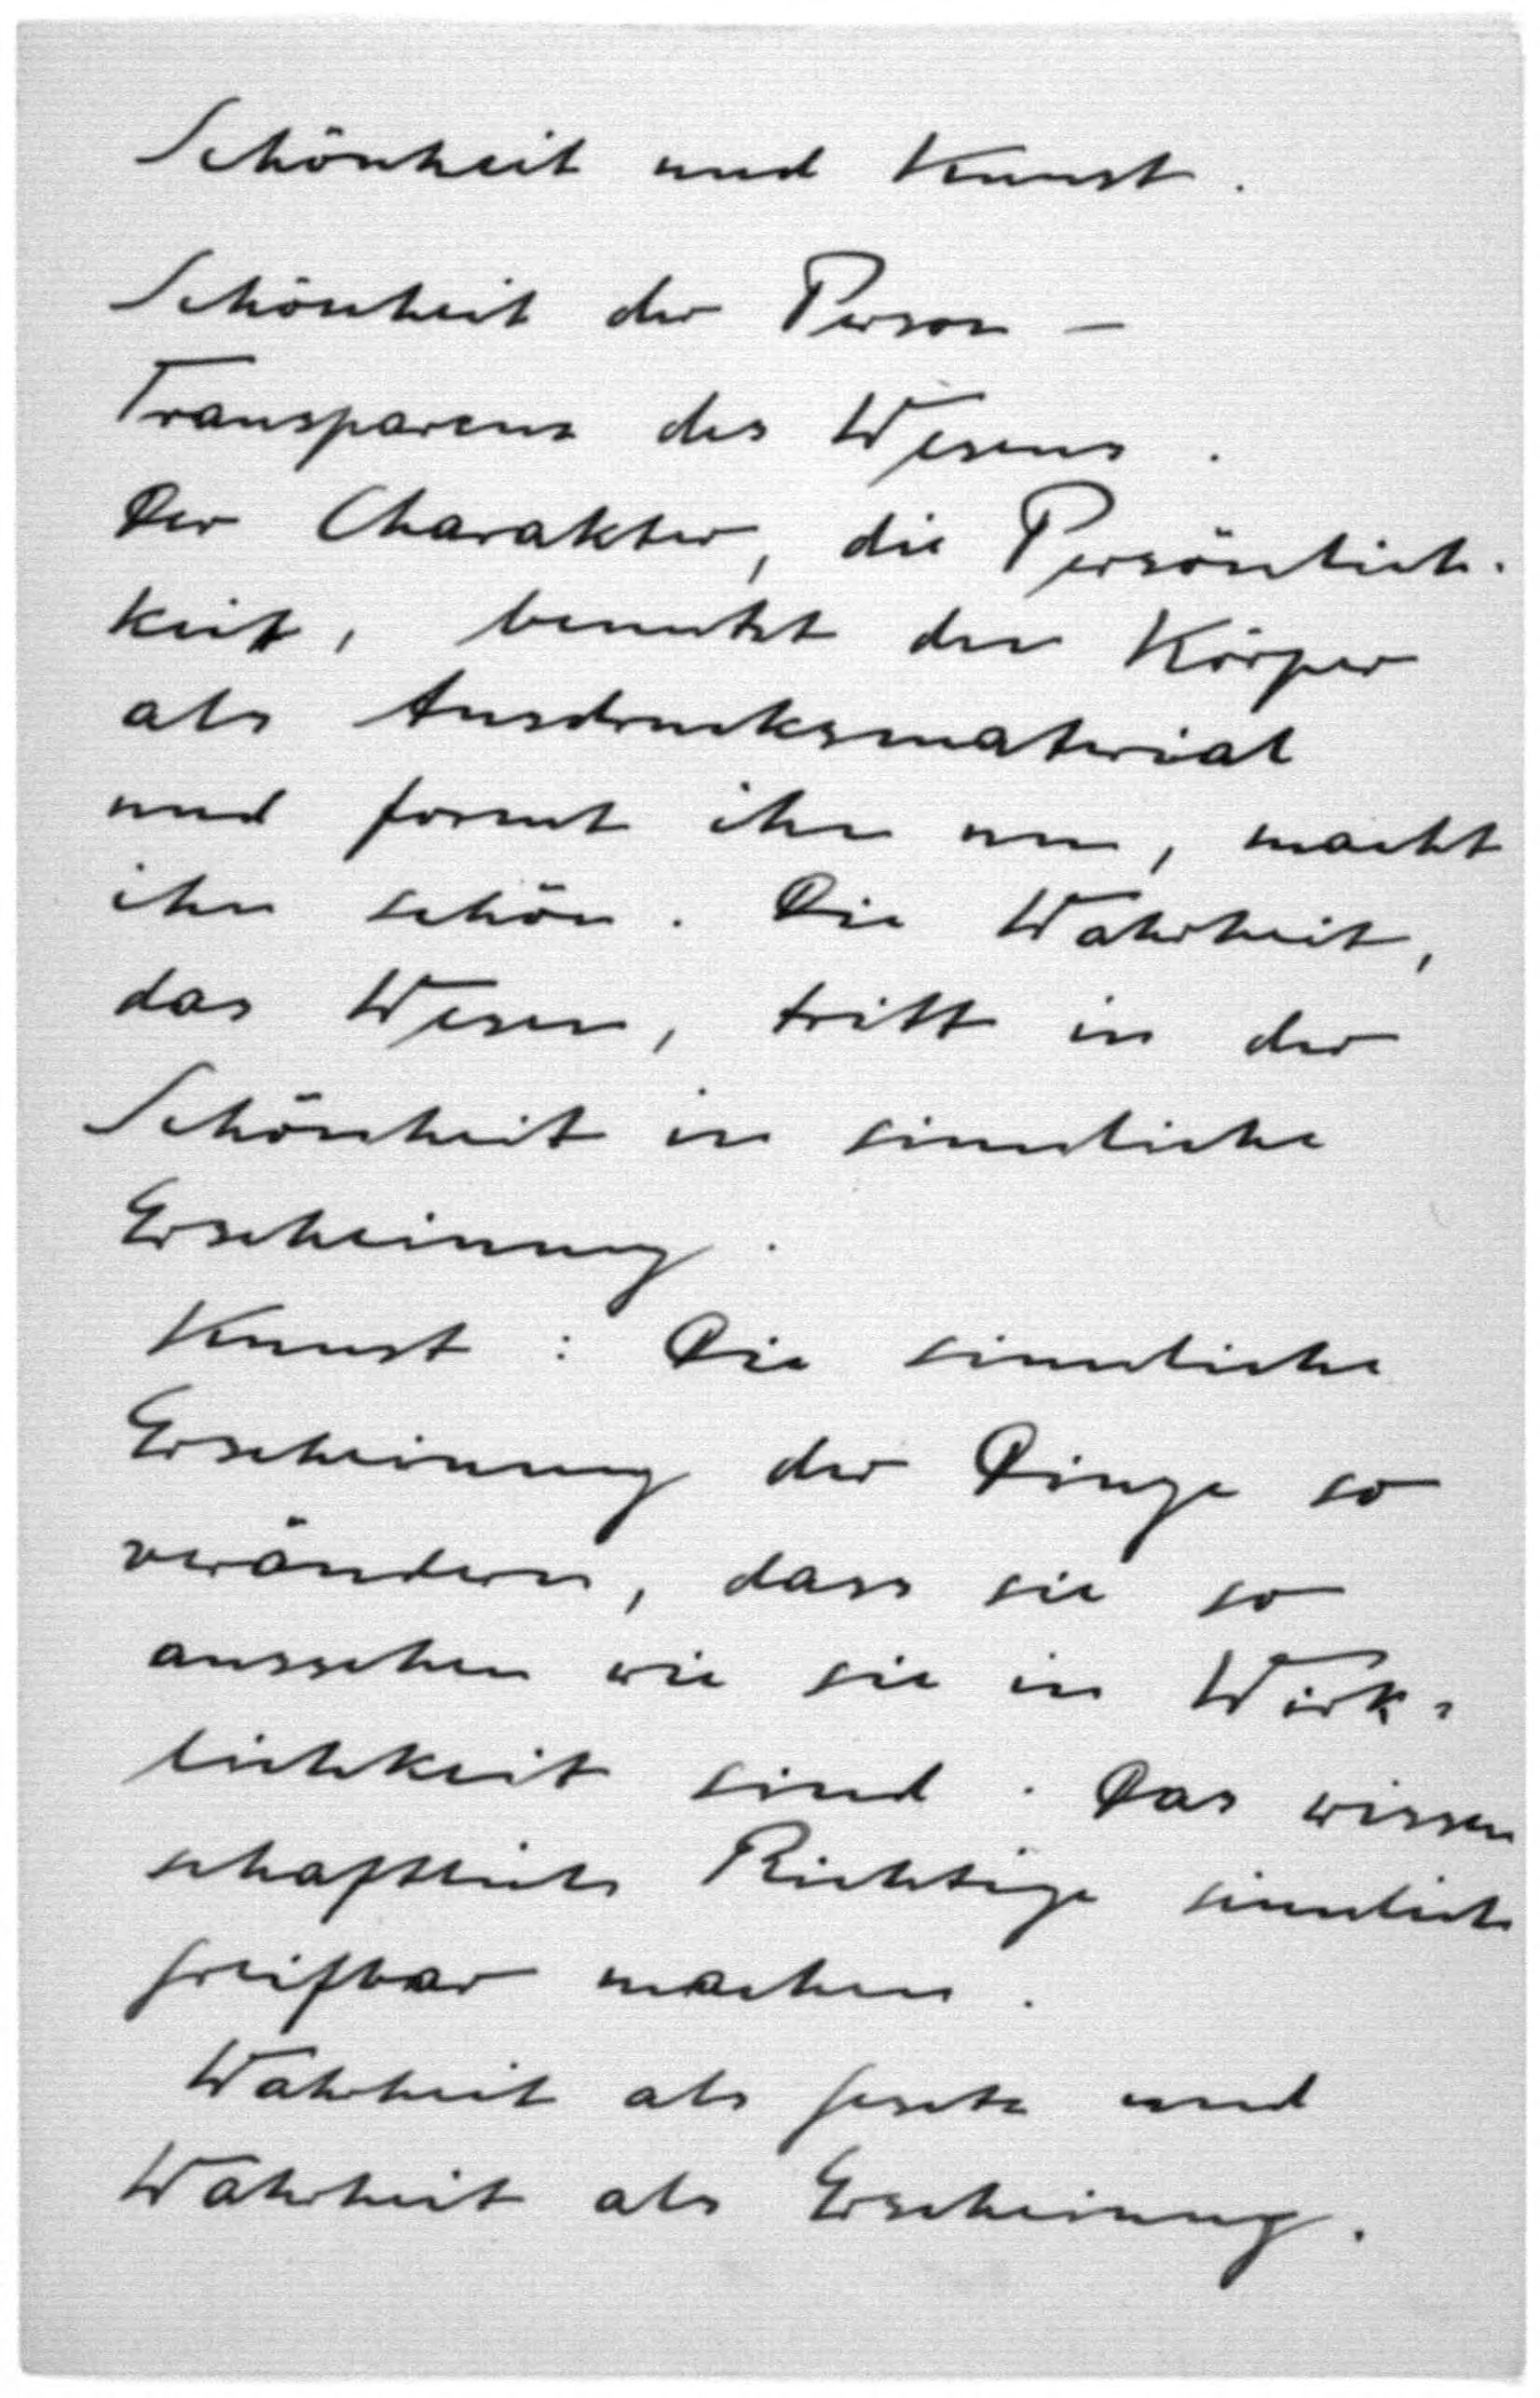 Schönheit und Kunst.
Schönheit der Person –
Transparenz des Wesens.
Der Charakter, die Persönlich-
keit, benutzt den Körper
als Ausdrucksmaterial
und formt ihn um, macht
ihn schön. Die Wahrheit,
das Wesen, tritt in der
Schönheit in sinnliche
Erscheinung.
Kunst: Die sinnliche
Erscheinung der Dinge so
verändern, dass sie so
aussehen wie sie in Wirk=
lichkeit sind. Das wissen
schaftlich Richtige sinnlich
greifbar machen.
Wahrheit als Gesetz und
Wahrheit als Erscheinung.